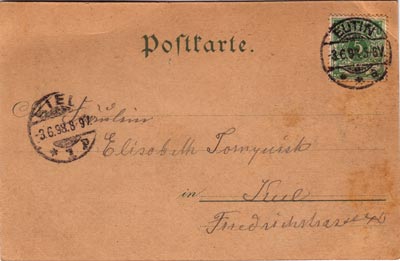 Postkarte.
EUTIN
KIEL
-3.6.98.8-9V.
Fräulein
Elisabeth Tornquist
in Kiel
Friedrichstrasse